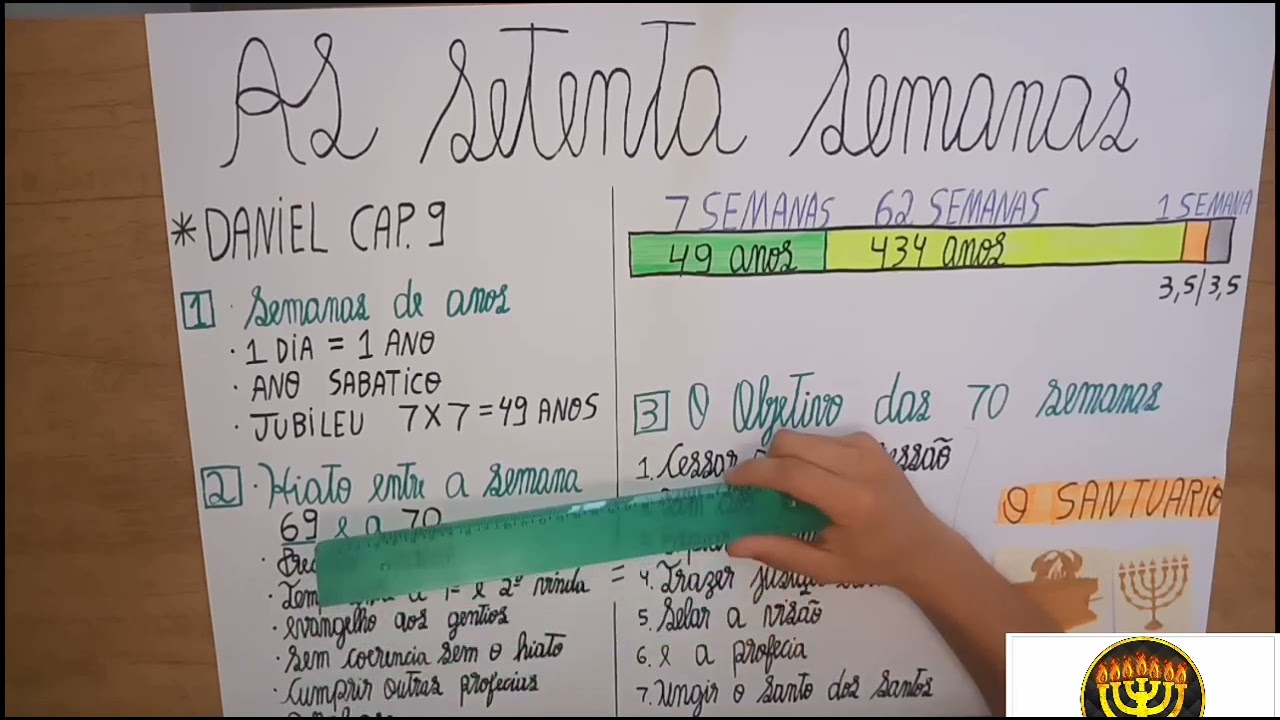 As setenta semanas
* DANIEL CAP. 9
1 · Semanas de anos
· 1 DIA = 1 ANO
· ANO SABATICO
· JUBILEU 7 X 7 = 49 ANOS
2 · Hiato entre a semana
69 e a 70
1ª e 2ª vinda =
· evangelho aos gentios
· Sem coerencia sem o hiato
· Cumprir outras profecias
7 SEMANAS 62 SEMANAS 1 SEMANA
49 anos 434 anos
3,5/3,5
3 O Objetivo das 70 semanas
1. Cessar
4. Trazer
5. Selar a visão
6. e a profecia
7. Ungir o santo dos santos
O SANTUARIO